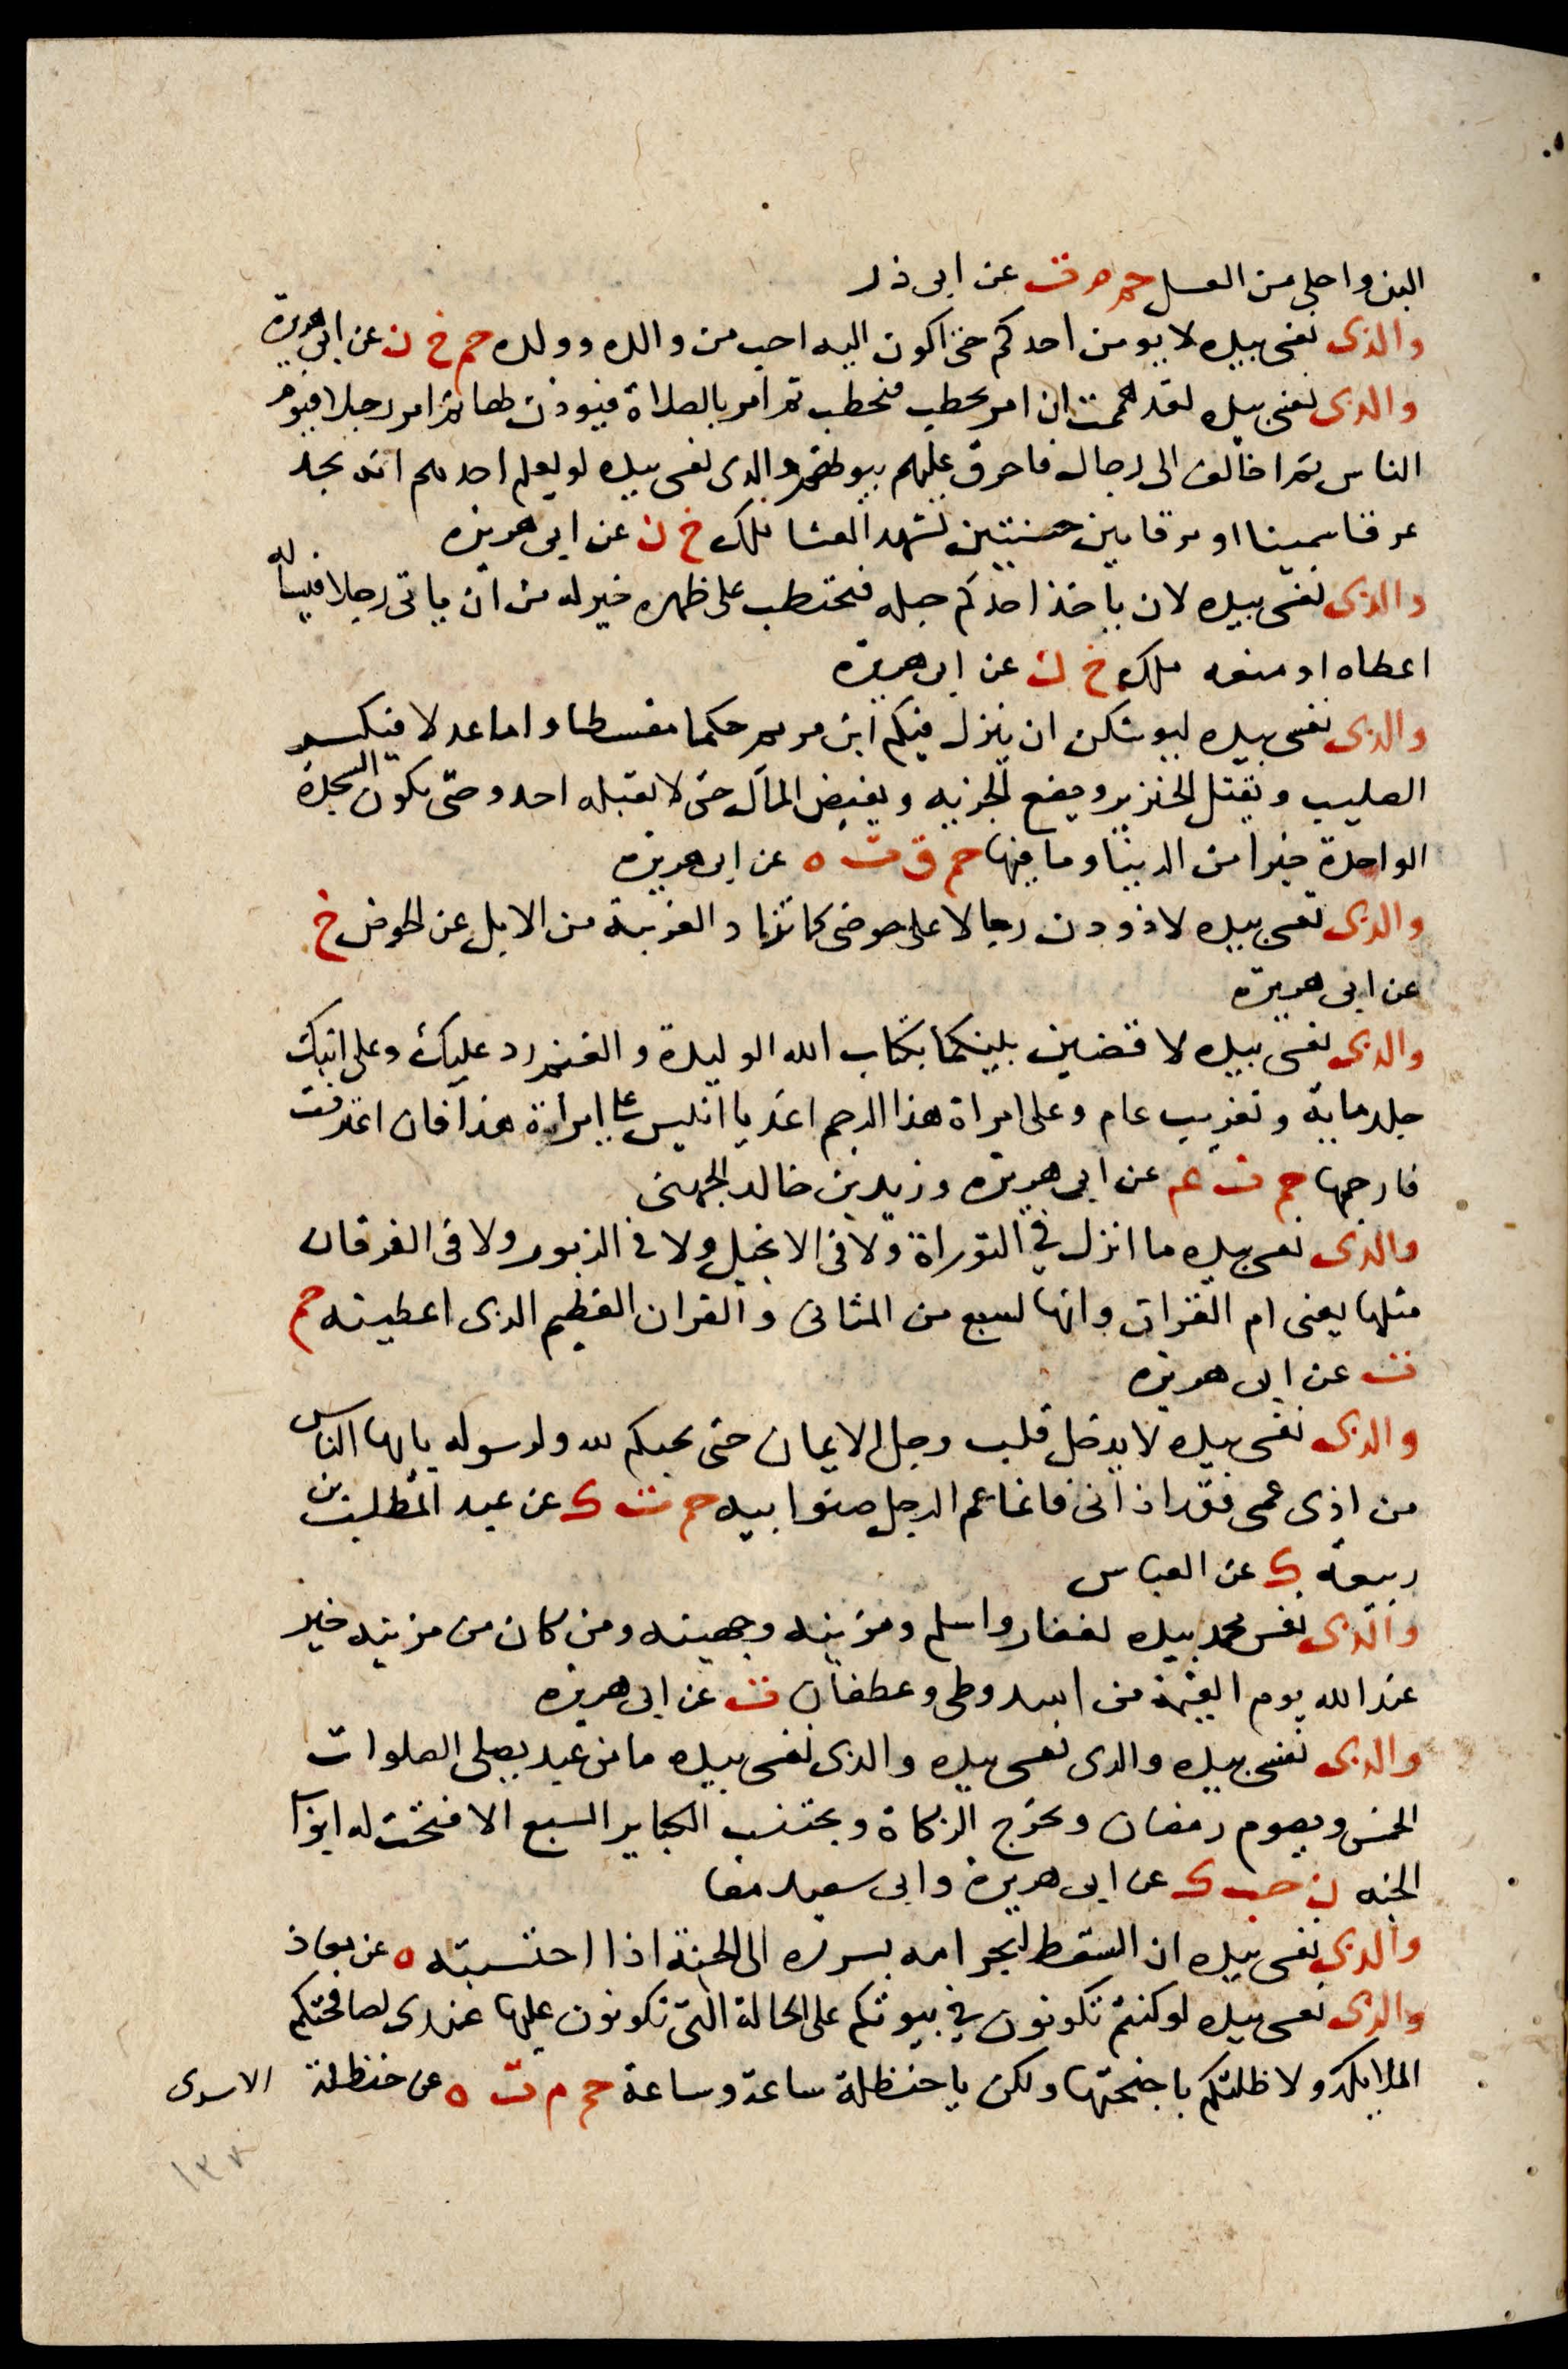 البن واحلى من العسل حم م ت عن ابى ذر
والذى نفسى بيده لا يومن احدكم حتى اكون اليه احب من والده وولده حم خ ن عن ابى هريرة
والذى نفسى بيده لقد هممت ان امر بحطب فيحطب ثم امر بالصلاة فيوذن لها ثم امر رجلا فيوم
الناس ثم اخالف الى رجال فاحرق عليهم بيوتهم والذى نفسى بيده لو يعلم احدهم انه يجد
عرقا سمينا او مرقاتين حسنتين لشهد العشا ملك خ ن عن ابى هريرة
والذى نفسى بيده لان ياخذ احدكم حبله فيحتطب على ظهره خير له من ان ياتى رجلا فيساله
اعطاه او منعه ملك خ ن عن ابى هريرة
والذى نفسى بيده ليوشكن ان ينزل فيكم ابن مريم حكما مقسطا واماما عدلا فيكسر
الصليب ويقتل الخنزير ويضع الجزيه ويفيض المال حتى لا يقبله احد وحتى يكون السجدة
الواحدة خيرا من الدينا وما فيها حم ق ت ه عن ابى هريرة
والذى نفسى بيده لاذودن رجالا على حوضى كما تذاد الغريبة من الابل عن الحوض خ
عن ابى هريرة
والذى نفسى بيده لاقضين بينكما بكتاب الله الوليدة والغنم رد عليك وعلى ابنك
جلد ماية وتغريب عام وعلى امراة هذا الرجم اغد يا انيس على امراة هذا فان اعترفت
فارجمها حم ق عم عن ابى هريرة وزيد بن خالد الجهنى
والذى نفسى بيده ما انزل فى التوراة ولا فى الانجيل ولا فى الزبور ولا فى الفرقان
مثلها يعنى ام القران وانها لسبع من المثانى والقران العظيم الذى اعطيته حم
ت عن ابى هريرة
والذى نفسى بيده لا يدخل قلب رجل الايمان حتى يحبكم لله ولرسوله يايها الناس
من اذى عمى فقد اذانى فانما عم الرجل صنو ابيه حم ت ك عن عبد المطلب بن
ربيعة ك عن العباس
والذى نفس محمد بيده لغفار واسلم ومزينه وجهينه ومن كان من مزينه خير
عند الله يوم القيمة من اسد وطى وغطفان ت عن ابى هريرة
والذى نفسى بيده والذى نفسى بيده والذى نفسى بيده ما من عبد يصلى الصلوات
الخمس ويصوم رمضان ويخرج الزكاة ويجتنب الكباير السبع الا فتحت له ابواب
الجنه ن حب ك عن ابى هريرة وابى سعيد معا
والذى نفسى بيده ان السقط ليجر امه بسرره الى الجنة اذا احتسبته ه عن معاذ
والذى نفسى بيده لو كنتم تكونون فى بيوتكم على الحالة التى تكونون عليها عندى لصافحتكم
الملايكة ولاظلتكم باجنحتها ولكن يا حنظلة ساعة وساعة حم م ت ه عن حنظلة الاسدى